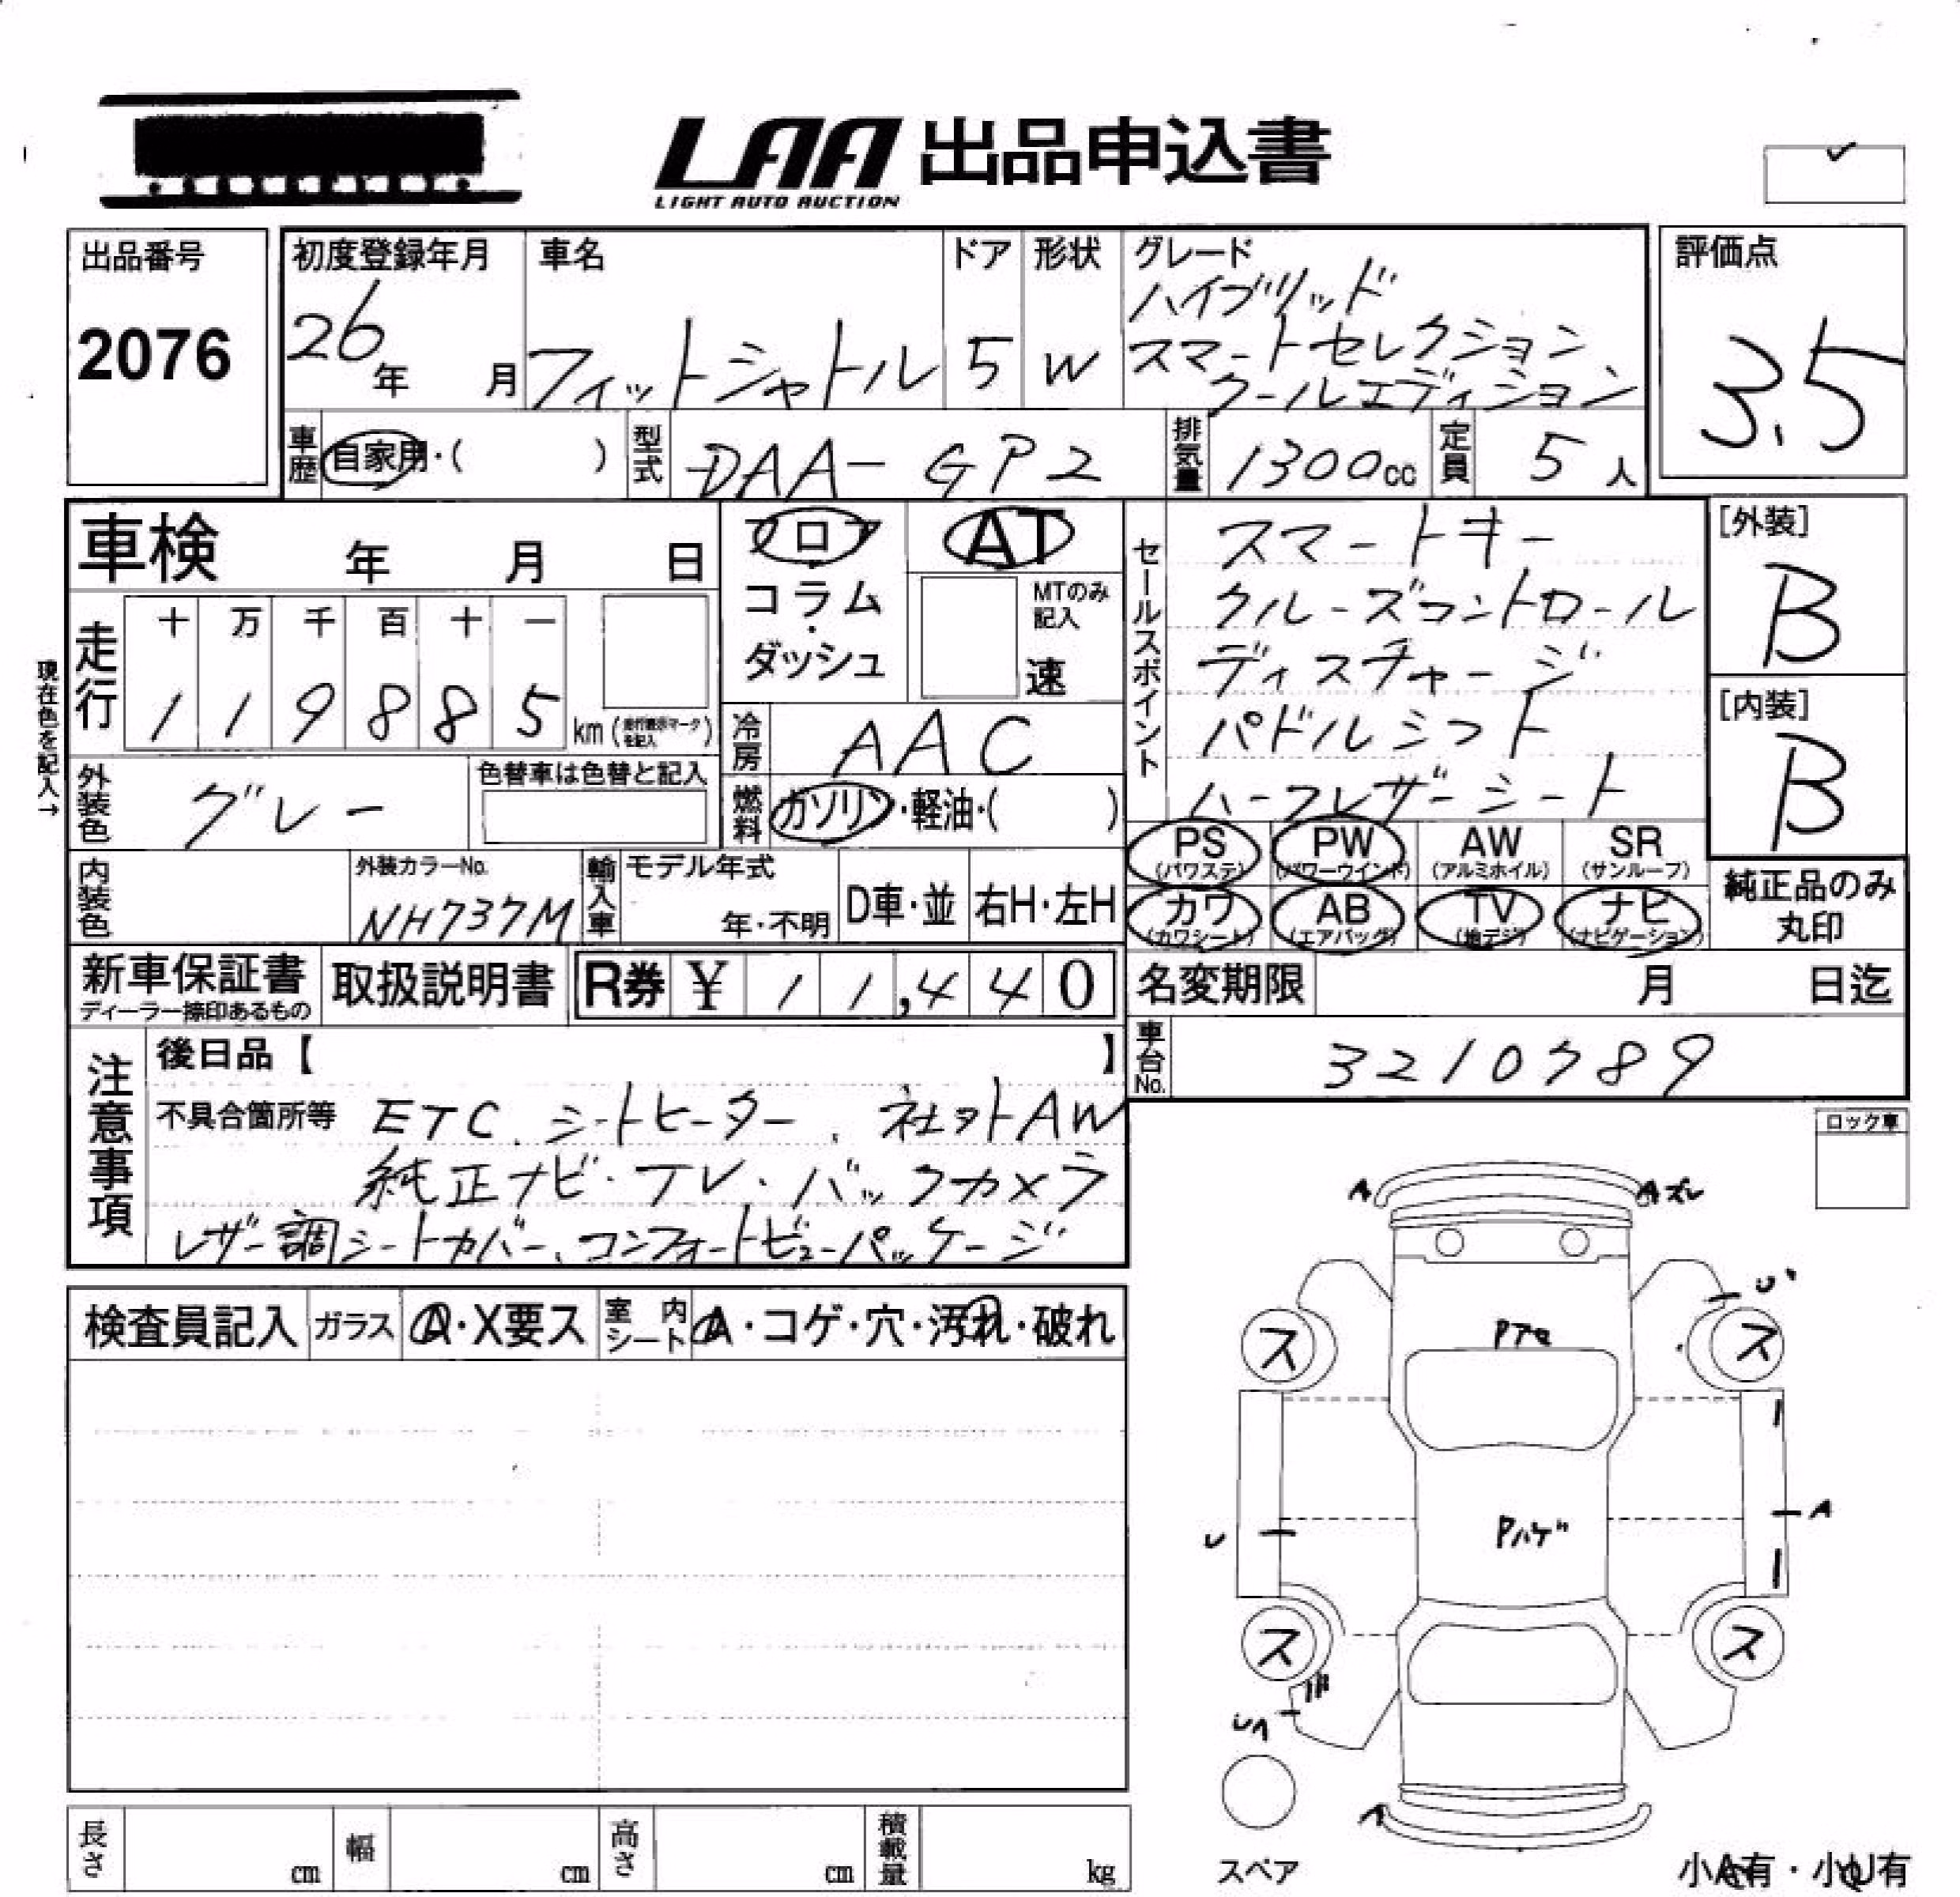 LAA 出品申込書
LIGHT AUTO AUCTION
出品番号
2076
初度登録年月
26年 月
車名
フィットシャトル
ドア
5
形状
W
グレード
ハイブリッド
スマートセレクション
クールエディション
評価点
3.5
車歴 自家用・( )
型式 DAA-GP2
排気量 1300cc
定員 5人
車検 年 月 日
現在色を記入→
走行
十 万 千 百 十 一
1 1 9 8 8 5 km
フロア
コラム
・
ダッシュ
AT
MTのみ
記入
速
冷房 AAC
燃料 ガソリン・軽油・( )
外装色 グレー
色替車は色替と記入
内装色
外装カラーNo.
NH737M
輸入車
モデル年式
年・不明
D車・並
右H・左H
セールスポイント
スマートキー
クルーズコントロール
ディスチャージ
パドルシフト
ハーフレザーシート
[外装]
B
[内装]
B
PS
(パワステ)
PW
(パワーウインド)
AW
(アルミホイル)
SR
(サンルーフ)
カワ
(カワシート)
AB
(エアバッグ)
TV
(地デジ)
ナビ
(ナビゲーション)
純正品のみ
丸印
新車保証書
ディーラー捺印あるもの
取扱説明書
R券 ¥ 11,440
名変期限 月 日迄
車台No. 3210789
注意事項
後日品【 】
不具合箇所等 ETC、シートヒーター、社外AW
純正ナビ・TV・バックカメラ
レザー調シートカバー、コンフォートビューパッケージ
ロック車
検査員記入
ガラス A・X要ス
室内シート A・コゲ・穴・汚れ・破れ
A
Aズレ
ス
ス
Pハゲ
U
A
ス
ス
A
スペア
小A有・小U有
長さ cm
幅 cm
高さ cm
積載量 kg